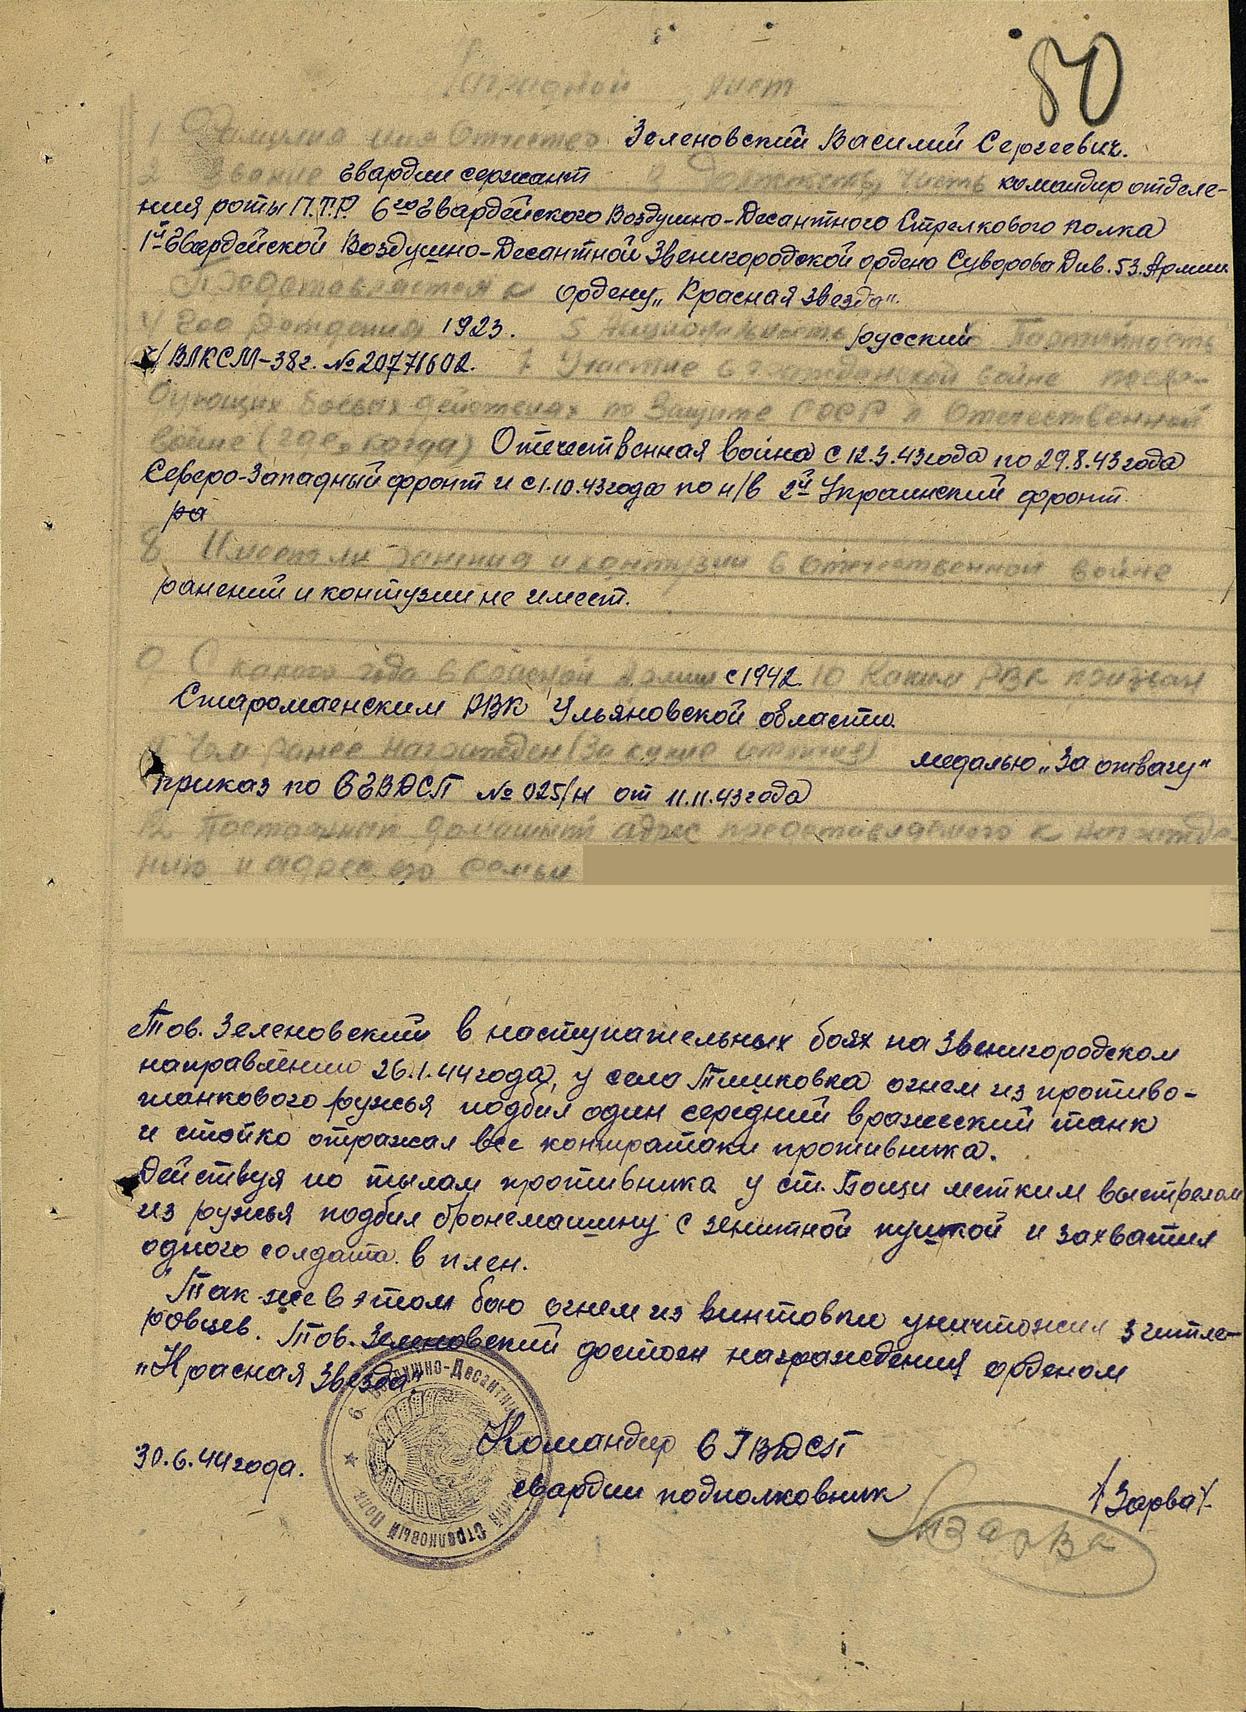 80
Наградной лист
1 Фамилия имя Отчество Зеленовский Василий Сергеевич.
2 Звание гвардии сержант 3 Должность, часть командир отделе-
ния роты П.Т.Р. 6го Гвардейского Воздушно-Десантного Стрелкового полка
1й Гвардейской Воздушно-Десантной Звенигородской ордена Суворова Див. 53. Армии
Представляется к ордену „Красная звезда".
4 Год рождения 1923. 5 Национальность русский 6 Партийность
ч/ВЛКСМ-38г. № 20771602. 7 Участие в гражданской войне после-
дующих боевых действиях по защите СССР и Отечественной
войне (где, когда) Отечественная война с 12.3.43 года по 29.8.43 года
Северо-Западный фронт и с 1.10.43 года по н/в 2й Украинский фронт
ра
8 Имеет ли ранения и контузии в отечественной войне
ранений и контузии не имеет.
9 С какого года в Красной Армии с 1942 10 Каким РВК призван
Старомаенским РВК Ульяновской области.
11 Чем ранее награжден (за какие отличия) медалью „За отвагу"
приказ по 6 ГВДСП № 025/н от 11.11.43 года
12 Постоянный домашний адрес представляемого к награжде-
нию и адрес его семьи
Тов. Зеленовский в наступательных боях на Звенигородском
направлению 26.1.44 года, у села Тишковка огнем из противо-
танкового ружья подбил один средний вражеский танк
и стойко отражал все контратаки противника.
Действуя по тылам противника у ст. Боши метким выстрелом
из ружья подбил бронемашину с зенитной пушкой и захватил
одного солдата в плен.
Так же в этом бою огнем из винтовки уничтожил 3 гитле-
ровцев. Тов. Зеленовский достоен награждения орденом
"Красная Звезда".
Командир 6 ГВДСП
30.6.44 года.
гвардии подполковник /Зарва/.
Зарва